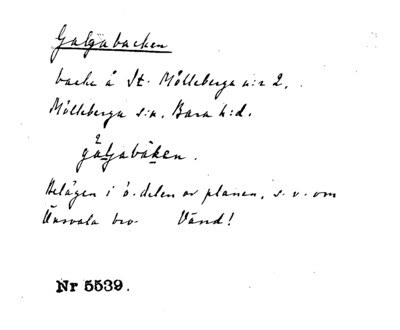 Galgabacken
backe å St. Mölleberga n:r 2,
Mölleberga s:n. Bara h:d.
gálgabäken.
Belägen i ö. delen av planen, s. v. om
Unsvala bro. Vänd!
Nr 5539.